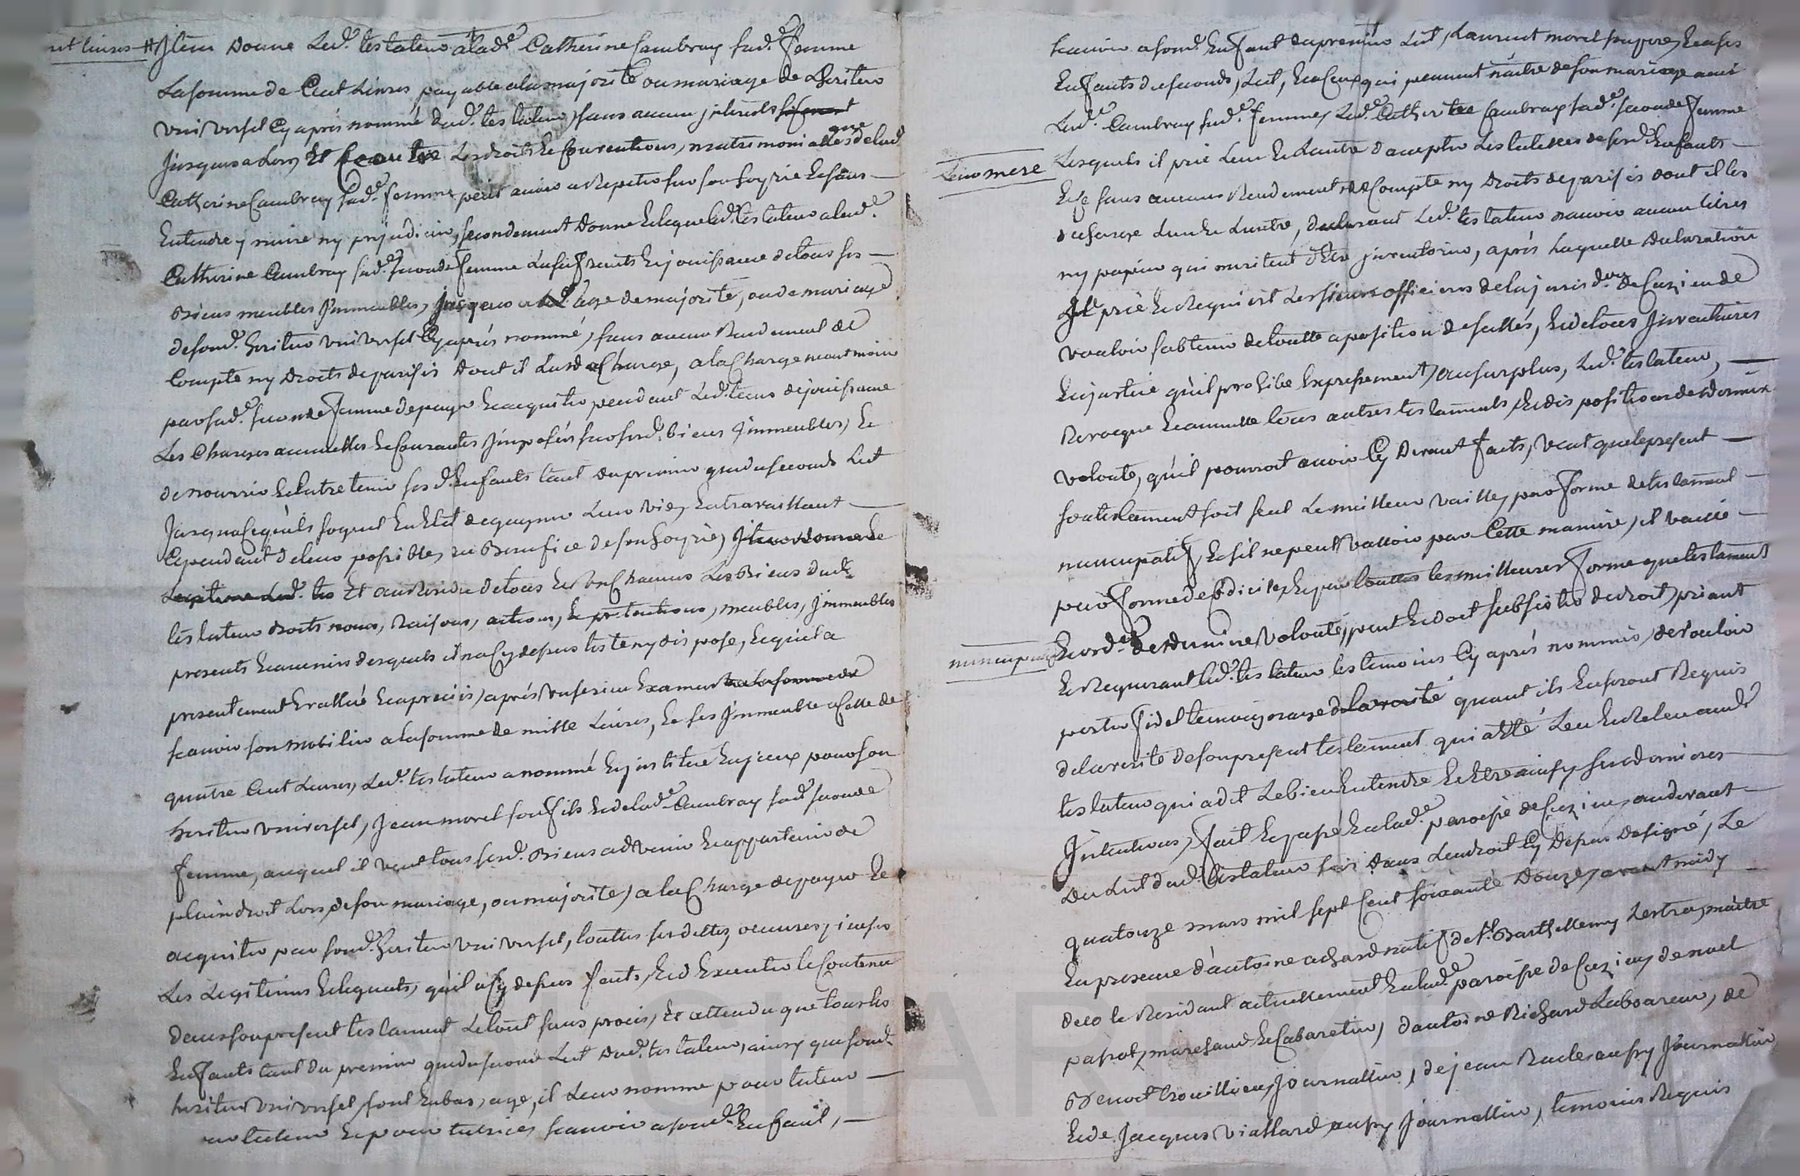 nt livres # Item donne Led.t testateur a lad.e Catherine Cambray sad.e femme
La somme de Cent Livres payable a la majorité ou mariage de Lheritier
universel Cy après nommé dud.t testateur, sans aucun jnterets
Jusques a Lors, et Les droits et Conventions, matrimonialles que lad.
Catherine Cambray sad.e femme peut avoir a Repeter sur son hoyrie et sans
Entendre y nuire ny préjudicier, secondement donne et legue led.t testateur a lad.e
Catherine Cambray sad.e seconde femme Lusufruits et jouissance de tous ses
Biens meubles Jmmeubles, jusques a L'age de majorité, ou de mariage
de son d.t heritier universel Cy après nommé, sans aucun Rendement de
Compte ny droits de parisis dont il La décharge, a la Charge neantmoins
par sad.e seconde femme de payer et acquitter pendant Led.t tems de jouissance
Les Charges annuelles et Courantes jmposées sur sesd. biens Jmmeubles, Et
de nourrir et Entretenir ses d. Enfants tant du premier que du second Lit
Jusqua ce quils soyent en Etat de gagner Leur vie, En travaillant
Cependant de leur possible, au Benefice de son hoyrie, Item donne et
Led.t tes Et au Residu de tous et un Chacuns Les Biens dud.t
testateur droits noms, Raisons, actions, et pretentions, meubles, Jmmeubles
presents et avenirs desquels il na Cy depuis testé ny disposé, Lequel a
presentement Evallué et apreciés, après serieux Examen a la somme de
scavoir son mobilier a la somme de mille Livres, Et ses Jmmeubles a Celle de
quatre Cent Livres, Led.t testateur a nommé et jnstitue Enjceux pour son
heritier universel, Jean morel son fils et de lad.e Cambray sad.e seconde
femme, auquel il veut tous sesd. Biens advenir et appartenir de
plain droit Lors, de son mariage, ou majorité, a la Charge de payer et
acquitter par son d.t heritier universel, touttes ses dettes, oeuvres pies
Les Legitimes et legats, qu'il a Cy depuis faits, Et d'Executer le Contenu
dans son present testament Le tout sans procès, Et attendu que tous les
Enfants tant du premier que du second Lit dud.t testateur, ainsy que son d.t
heritier universel, sont En bas, age, il Leur nomme pour tuteur
et pour tutrice, scavoir a son d.t Enfant,
scavoir a son d. Enfant du premier Lit, Laurent morel, Et a ses
Enfants du second, Lit, Et a Ceux qui peuvent naitre de son mariage avec
Lad.e Cambray sad.e femme, Lad.e Catherine Cambray sad.e seconde femme
Leur mere Lesquels il prie Lun et Lautre d'accepter Les tutelles de sesd. Enfants
Et Ce sans aucuns Rendement de Compte ny droits de parisis dont il les
decharge Lun et Lautre, declarant Led.t testateur n'avoir aucun titres
ny papier qui meritent d'Etre jnventoriés, après Laquelle declaration
Jl prie et Requiert Les sieurs officiers de la jurisd.on de Cuzieu de
vouloir sabtenir de toutte aposition de scellés, et de tous Jnventaires
En justice qu'il prohibe Expressement, au surplus, Led.t testateur,
Revoque et annulle tous autres testaments, et dispositions de derniere
volonté, qu'il pourroit avoir Cy devant faits, veut que le present
testament soit seul Le meilleur vaille, par forme de testament
nuncupatif nuncupatif, et sil ne peut valloir par Cette maniere, il vaille
par forme de Codicile, et par touttes les meilleures formes que testament
Et ord.e de derniere volonté, peut et doit subsister de droit, priant
et Requerant led.t testateur les temoins Cy après nommés, de vouloir
porter fidel temoignage de La verité quant ils En seront Requis
de la verité de son present testament qui a Eté Leu et Releu aud.t
testateur qui a dit Le bien Entendre Et Etre ainsy ses dernieres
Jntentions, fait et passé En lad.e paroisse de Cuzieu, au devant
du Lit dud.t testateur sis dans Lendroit Cy depuis designé, Le
quatorze mars mil sept Cent soixante douze, avant midy
En presence d'antoine achard natif de S.t Barthellemy Lestra, maitre
decole Residant actuellement En lad.e paroisse de Cuzieu, de noel
pasnot, marchand et Cabaretier, d'antoine Richard Laboureur, de
Benoit trouillieu, journallier, de jean Racle aussy Journallier,
Et de Jacques viallard aussy journallier, temoins Requis